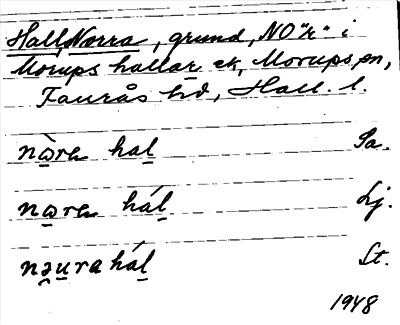 Hall, Norra, grund, NO"r" i
Morups hallar ek, Morups sn,
Faurås hd, Hall. l.
nɷ̀rɐ haḻ Sa.
nɷrɐ háḻ Lj.
nəu̱ra háḻ St.
1948